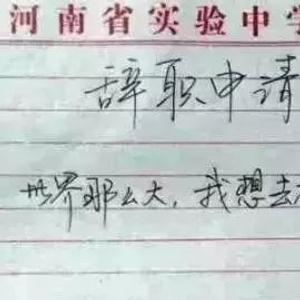 河南省实验中学
辞职申请
世界那么大，我想去